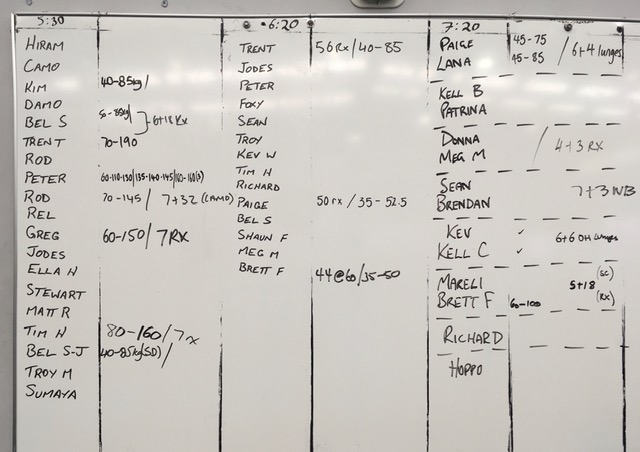 5:30
HIRAM
CAMO
KIM 40-85kg/
DAMO
BEL S 6+18 RX
TRENT 70-190
ROD
PETER 60-110-130/135-140-145/160-160(3)
ROD 70-145 / 7+32 (CAMO)
REL
GREG 60-150/ 7RX
JODES
ELLA H
STEWART
MATT R
TIM H 80-160/7rx
BEL S-J 40-85kg(SD)/
TROY M
SUMAYA
6:20
TRENT 56 Rx/40-85
JODES
PETER
FOXY
SEAN
TROY
KEV W
TIM H
RICHARD
PAIGE 50 rx / 35-52.5
BEL S
SHAUN F
MEG M
BRETT F 44@60/35-50
7:20
PAIGE 45-75
LANA 45-85 / 6+4 lunges
KELL B
PATRINA
DONNA
MEG M / 4+3 RX
SEAN
BRENDAN 7+3 WB
KEV ✓
KELL C ✓ 6+6 OH lunges
MARELI 5+18 (SC)
BRETT F 60-100 (RX)
RICHARD
HOPPO